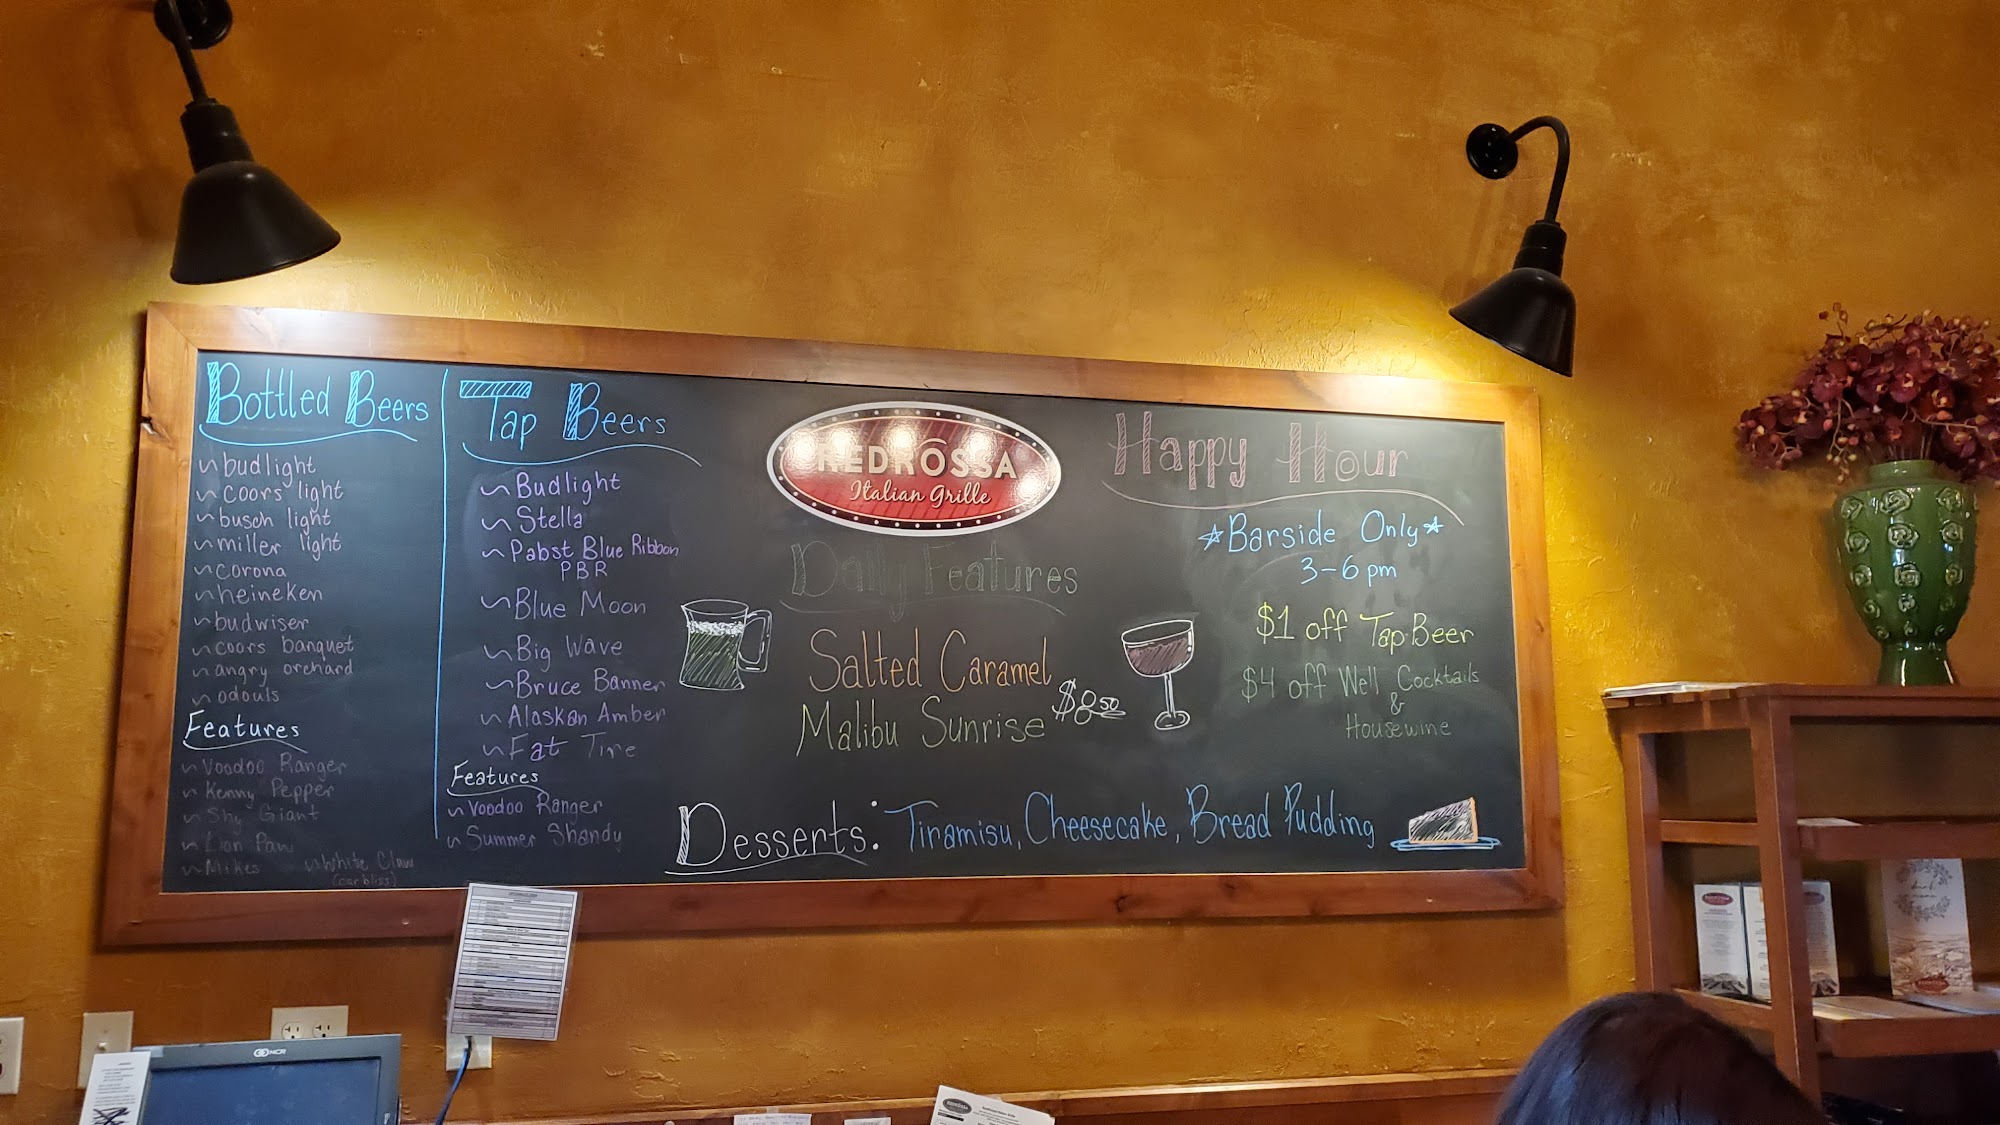 Bottled Beers
~budlight
~coors light
~busch light
~miller light
~corona
~heineken
~budwiser
~coors banquet
~angry orchard
~odouls
Features
~Voodoo Ranger
~Kenny Pepper
~Shy Giant
~Lion Paw
~Mikes ~White Claw
Tap Beers
~Budlight
~Stella
~Pabst Blue Ribbon
PBR
~Blue Moon
~Big Wave
~Bruce Banner
~Alaskan Amber
~Fat Tire
Features
~Voodoo Ranger
~Summer Shandy
REDROSSA
Italian Grille
Daily Features
Salted Caramel
Malibu Sunrise $8.50
Happy Hour
*Barside Only*
3-6pm
$1 off Tap Beer
$4 off Well Cocktails
&
Housewine
Desserts: Tiramisu, Cheesecake, Bread Pudding
NCR